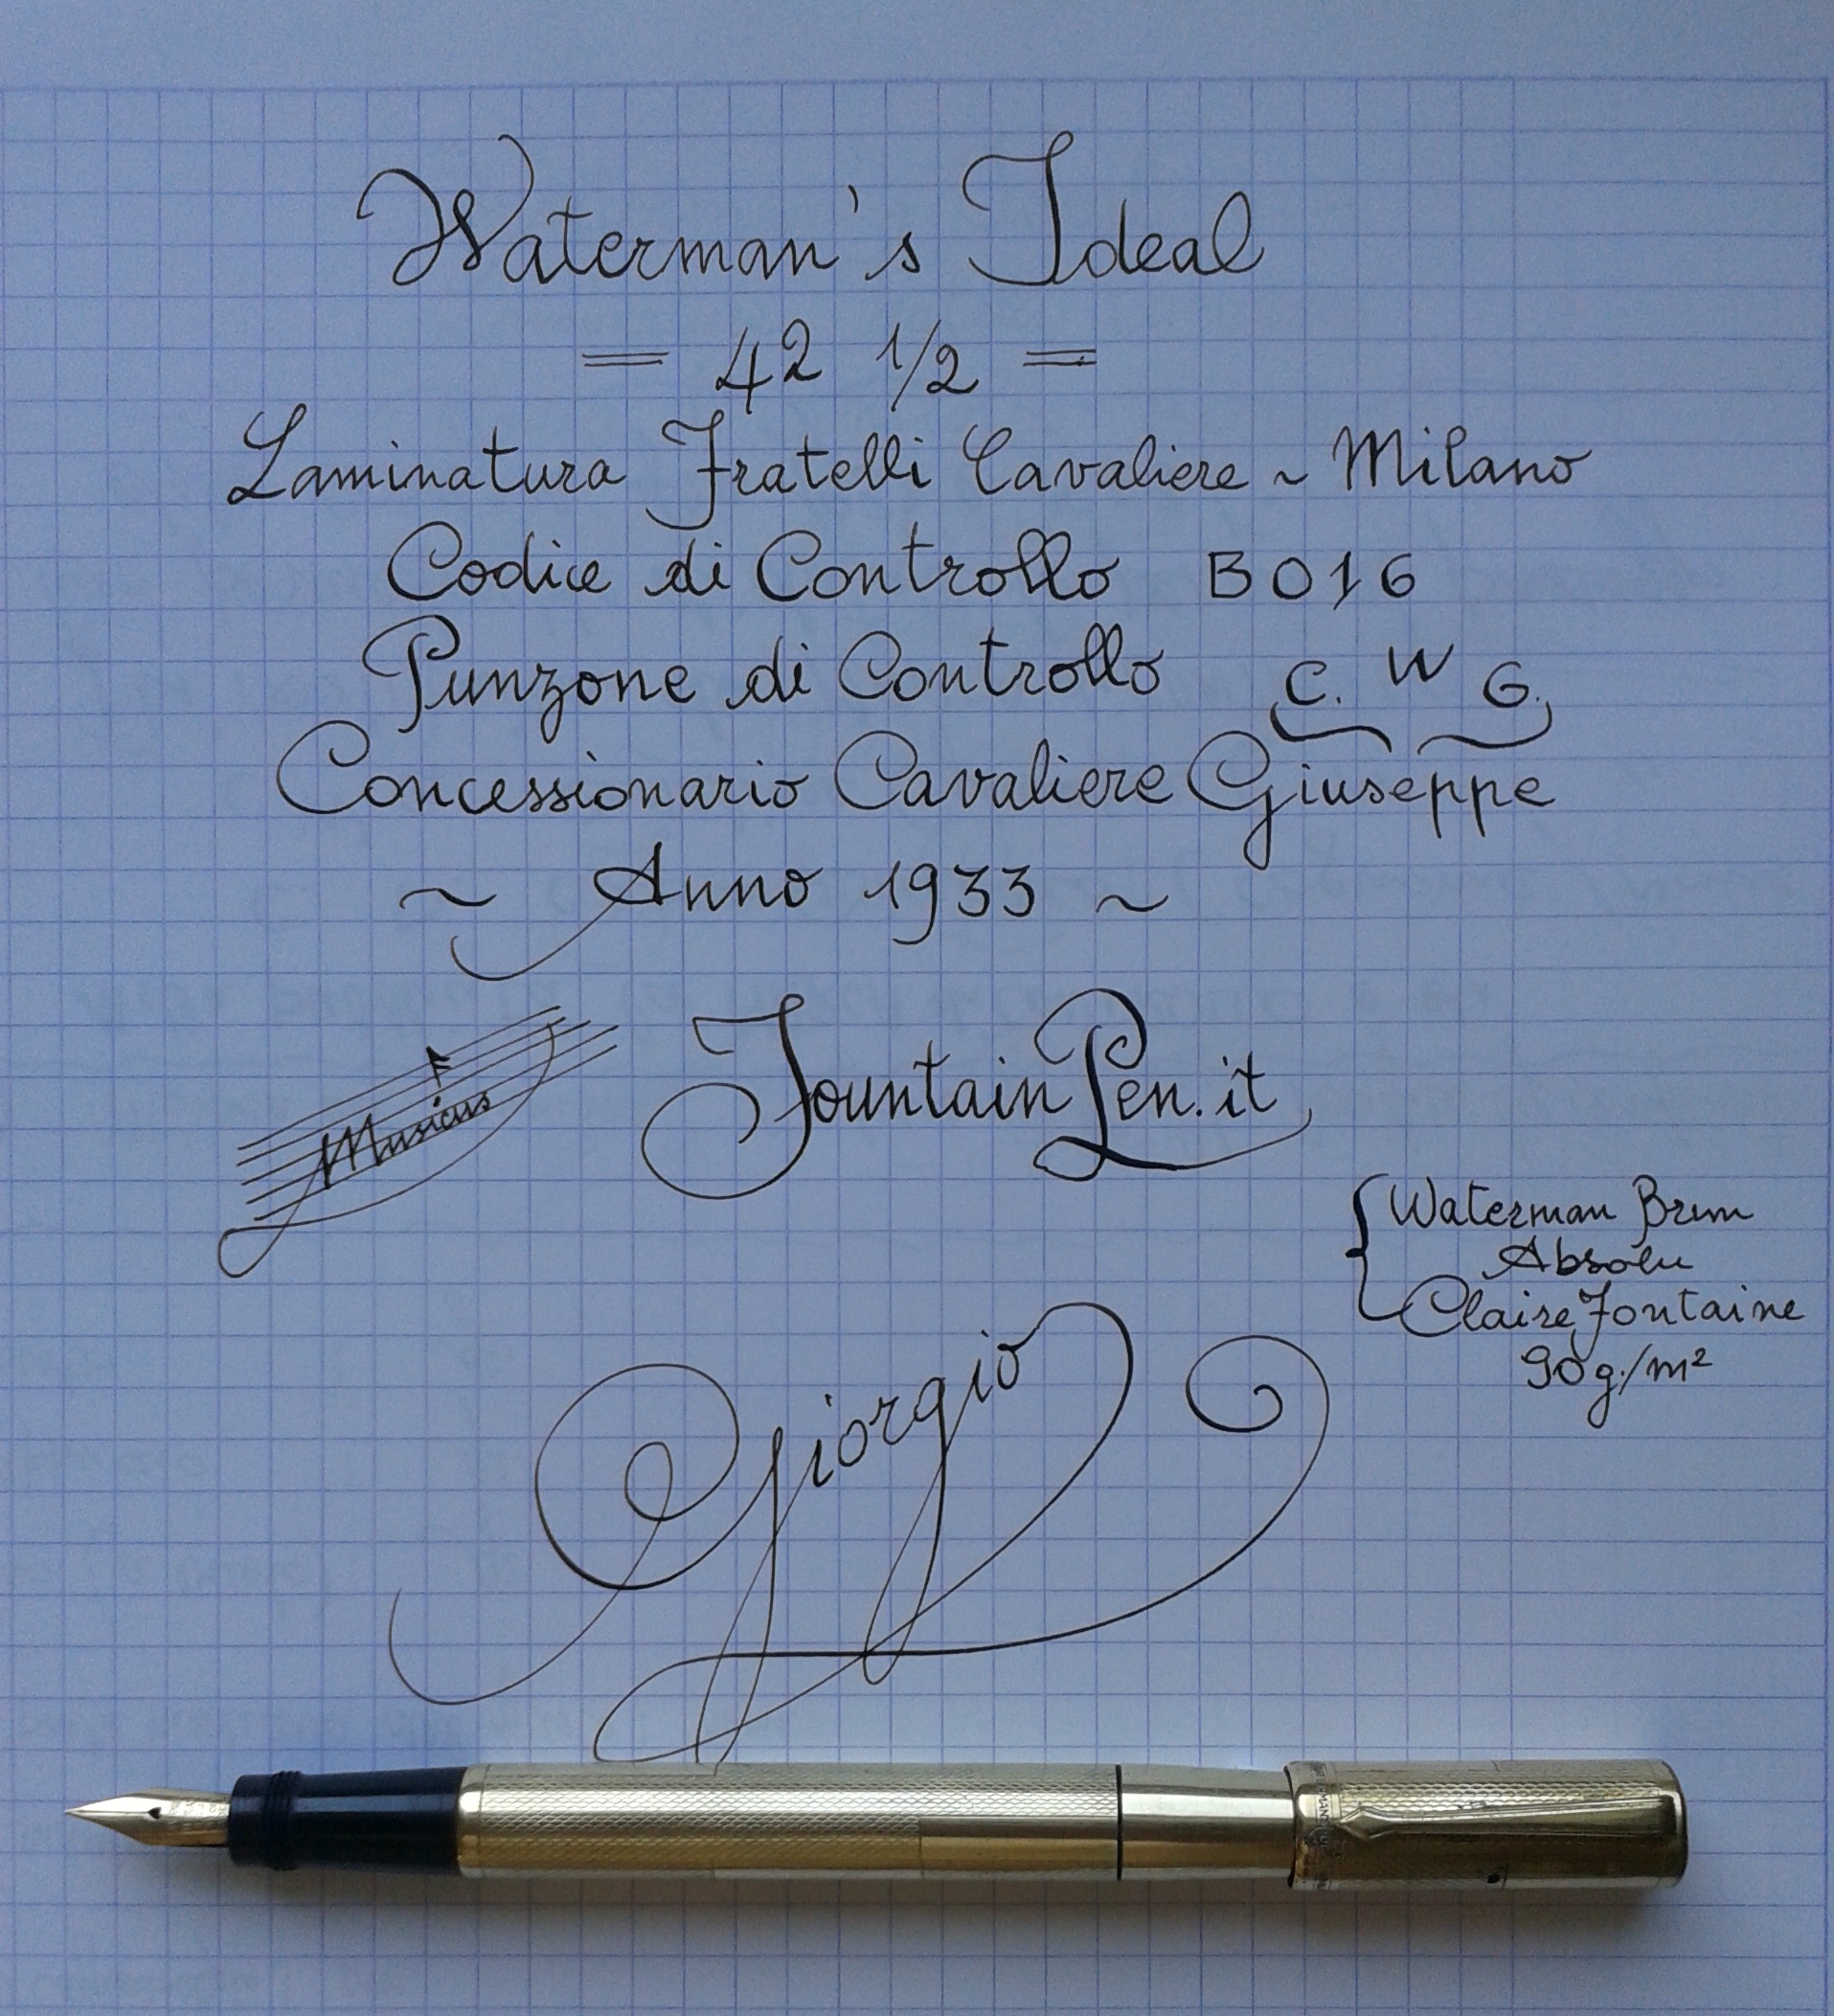 Waterman's Ideal
= 42 1/2 =
Laminatura Fratelli Cavaliere ~ Milano
Codice di Controllo B016
Punzone di Controllo C. W G.
Concessionario Cavaliere Giuseppe
~ Anno 1933 ~
Musicus
FountainPen.it
Waterman Brun
Absolu
ClaireFontaine
90g/m²
Giorgio